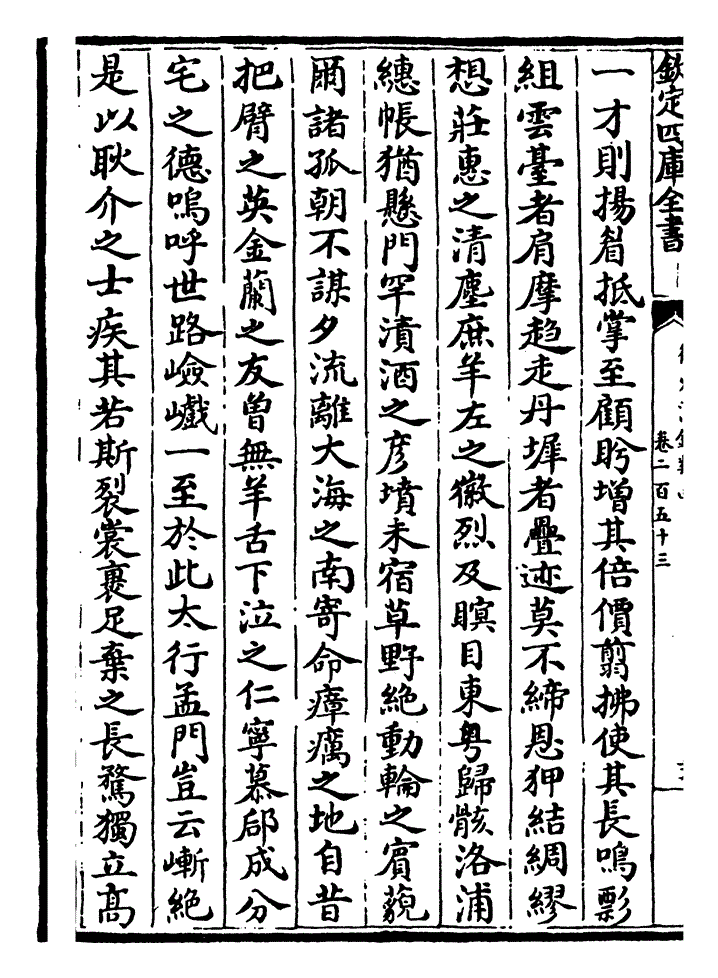 欽定四庫全書
卷二百五十三
一才則揚眉抵掌至顧盼增其倍價翦拂使其長鳴影
組雲臺者肩摩趨走丹墀者疊迹莫不締恩狎結綢繆
想莊惠之清塵庶羊左之徽烈及瞑目東粤歸骸洛浦
繐帳猶懸門罕漬酒之彦墳未宿草野絶動輪之賓藐
爾諸孤朝不謀夕流離大海之南寄命瘴癘之地自昔
把臂之英金蘭之友曽無羊舌下泣之仁寧慕郈成分
宅之德嗚呼世路嶮巇一至於此太行孟門豈云嶄絶
是以耿介之士疾其若斯裂裳裹足棄之長騖獨立髙